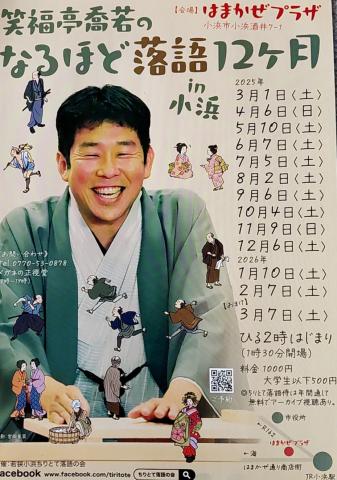 笑福亭喬若の
なるほど落語12ヶ月
in
小浜
【会場】はまかぜプラザ
小浜市小浜酒井7-1
2025年
3月1日〈土〉
4月6日〈日〉
5月10日〈土〉
6月7日〈土〉
7月5日〈土〉
8月2日〈土〉
9月6日〈土〉
10月4日〈土〉
11月9日〈日〉
12月6日〈土〉
2026年
1月10日〈土〉
2月7日〈土〉
【おまけ】
3月7日〈土〉
ひる2時はじまり
(1時30分開場)
料金 1000円
大学生以下500円
◎ちりとて落語待は年間通して
無料でアーカイブ視聴あり。
《お問い合わせ》
Tel 0770-53-0878
メガネの正視堂
ご予約
市役所
はまかぜプラザ
←海
はまかぜ通り商店街
JR小浜駅
主催:若狭小浜ちりとて落語の会
facebook www.facebook.com/tiritote
ちりとて落語の会